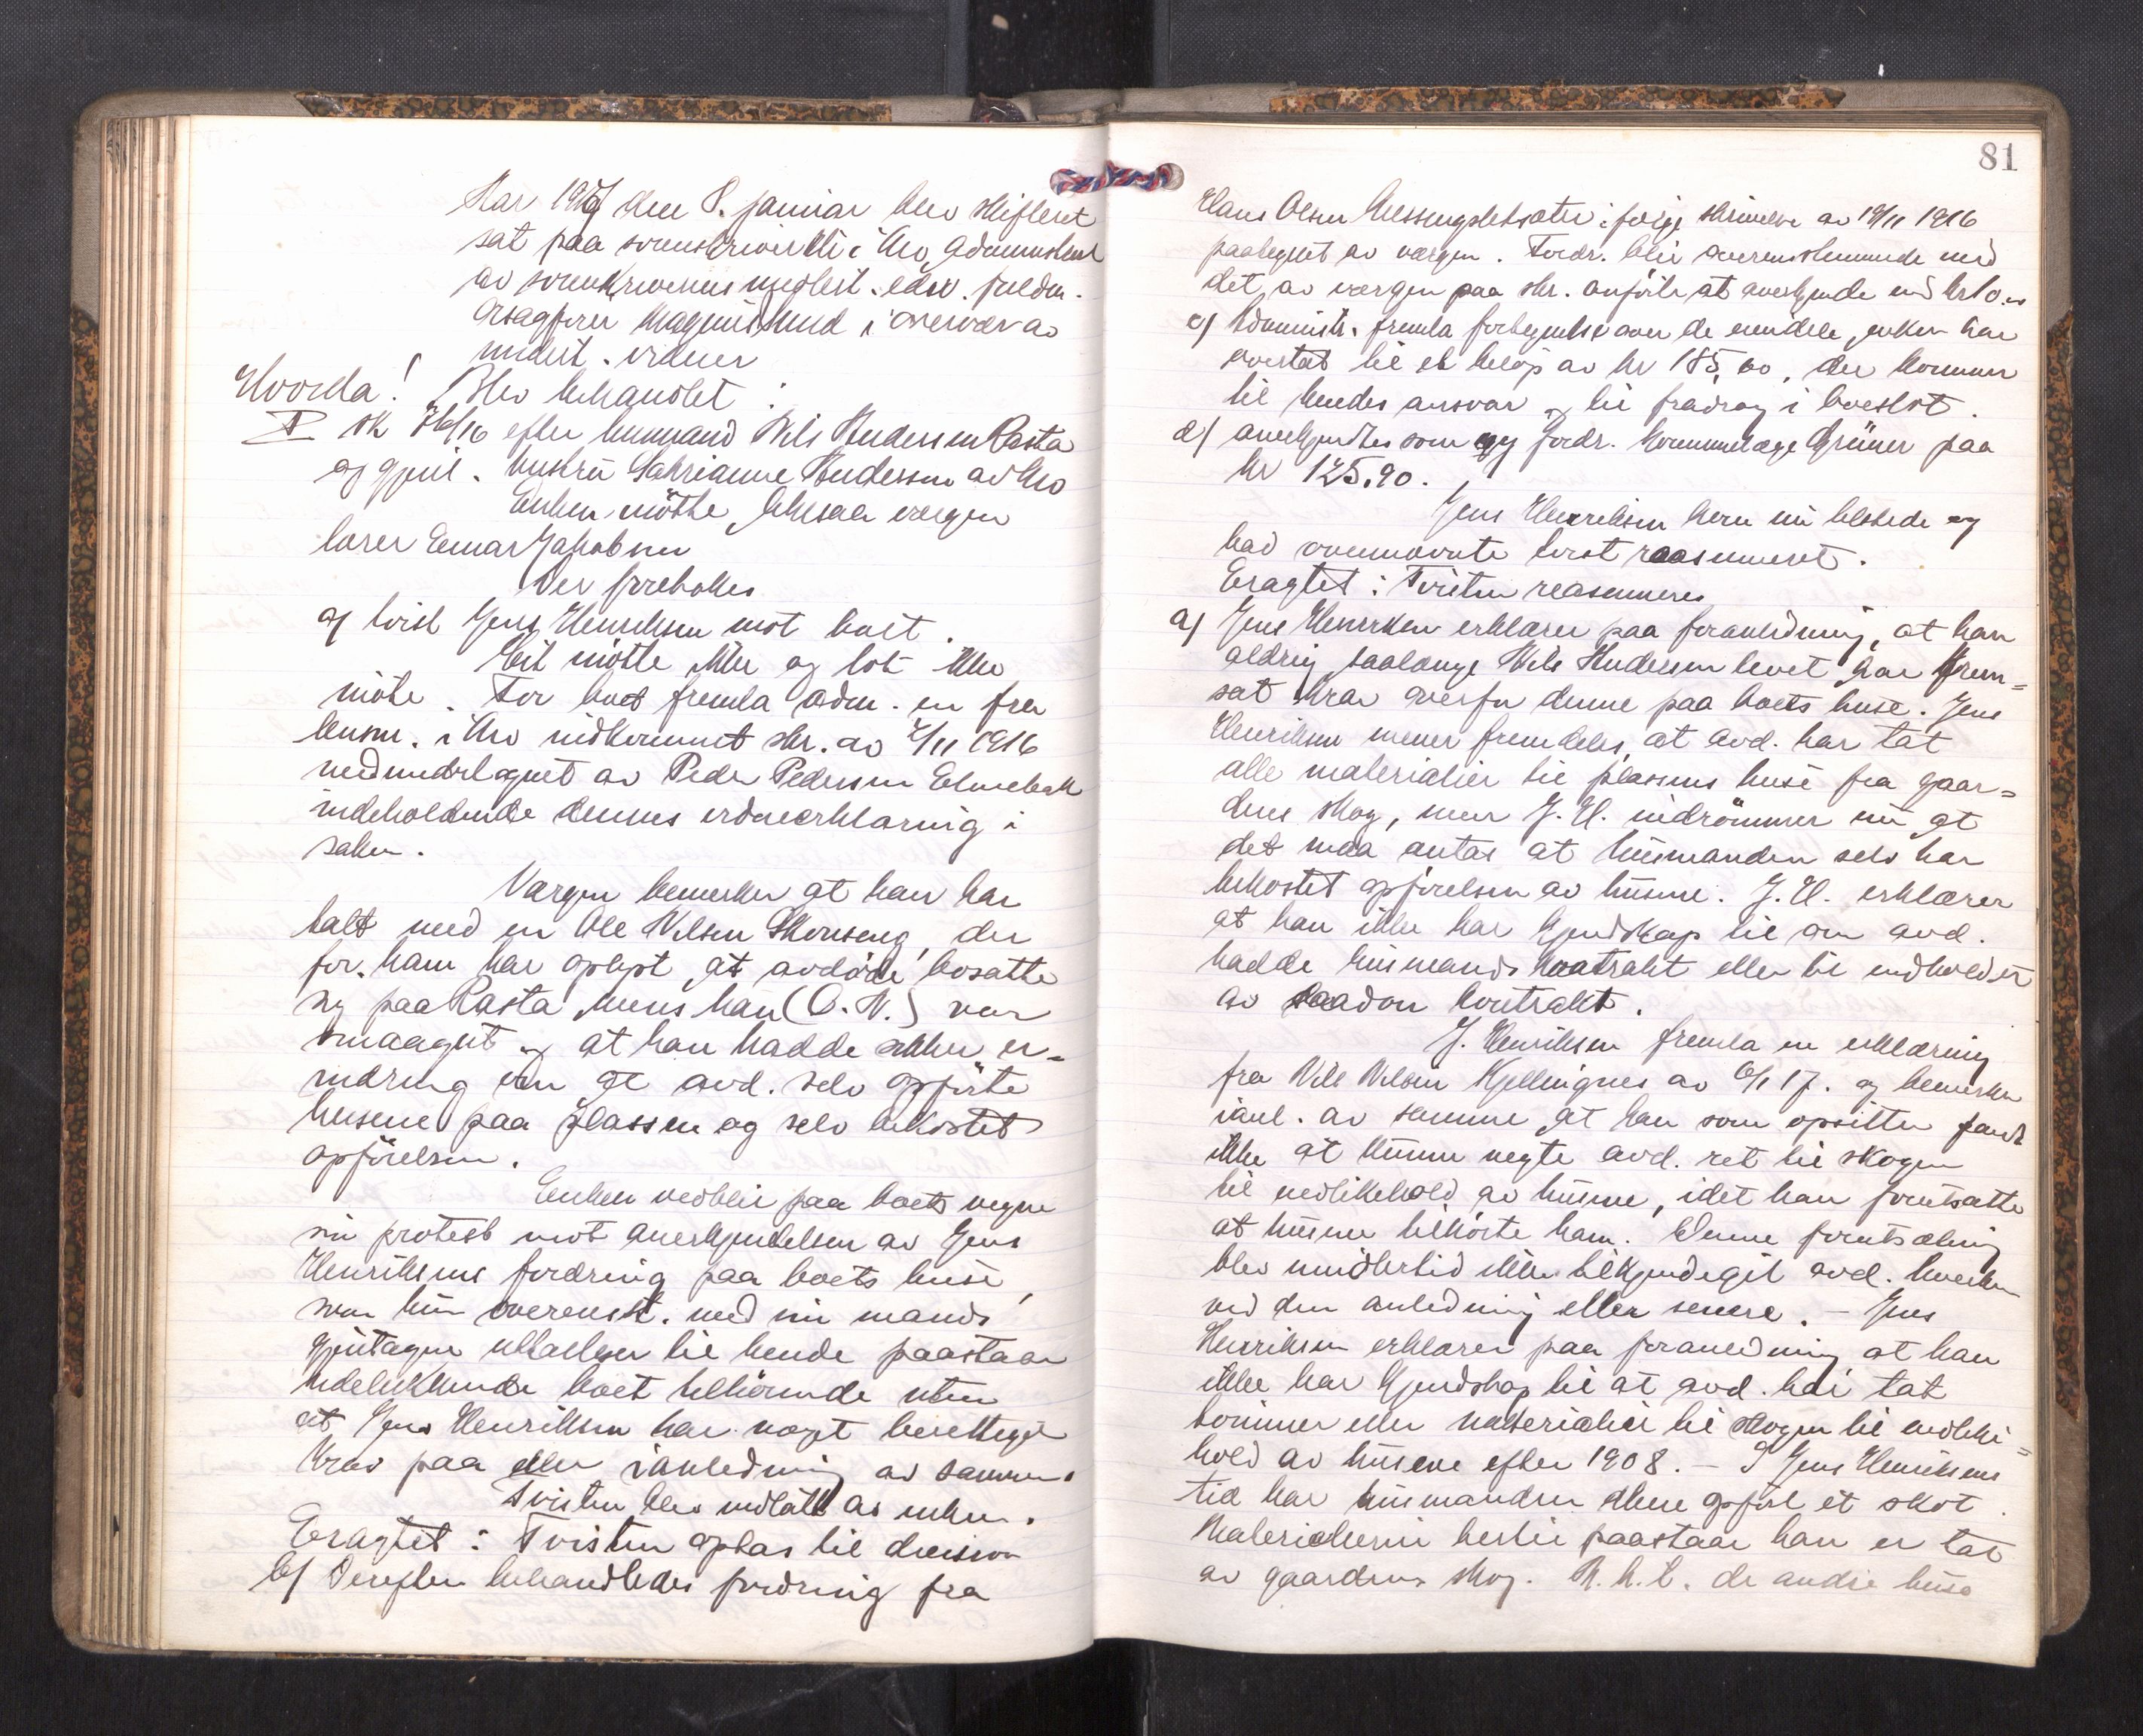 Aar 1917 den 8. januar blev skifteret
sat paa sorenskriverkt. i Mo, administrert
av sorenskriverens midlert. edsv. fuldm.
Orsagfører Magnus Lund i overvær av
undert. vidner
Hvorda! Blev behandlet :
I sk 76/16 efter husmand Nils Andersen Rasta
og gjenl. hustru Zakrianne Andersen av Mo
Enken møtte, likesaa vergen
lærer Einar Jakobsen
Der foreholdes
a) tvist Jens Henriksen mot boet.
Cit. møtte ikke og lot ikke
møte. For boet fremla adm. en fra
lensm. i Mo indkommet skr. av 2/11 1916
medundertegnet av Peder Pedersen
indeholdende dennes vidneerklæring i
saken.
Vergen bemerker at han har
talt med en Ole Nilsen Skonseng, der
for ham har oplyst at avdøde bosatte
sig paa Rasta mens han (O. N.) var
smaagut og at han hadde sikker er-
indring om at avd. selv opførte
husene paa plassen og selv bekostet
opførelsen.
Enken vedblir paa boets vegne
sin protest mot anerkjendelsen av Jens
Henriksens fordring paa boets huse,
som hun overenst. med sin mands
gjentagne uttalelser til hende paastaar
udelukkende boet tilhørende uten
at Jens Henriksen har noget berettiget
krav paa eller i anledning av samme.
Tvisten blev indlatt av enken.
Eragtet: Tvisten optas til decision
b) Derefter behandledes fordring fra
81
Hans Olsen ifølge skrivelse av 19/11 1916
paategnet av vergen. Fordr. blir overensstemmende med
det av vergen paa skr. anførte at anerkjende med kr 10.00
c) Administr. fremla fortegnelse over de eiendele, enken har
overtat til et beløp av kr 185,00, der kommer
til hendes ansvar og til fradrag i boeslot.
d) anerkjendtes som ny fordr. kommunelæge Grüner paa
kr 125.90.
Jens Henriksen kom nu tilstede og
bad ovennævnte tvist reasumeret.
Eragtet: Tvisten reasumeres
a) Jens Henriksen erklærer paa foranledning, at han
aldrig saalænge Nils Andersen levet har frem=
sat krav overfor denne paa boets huse. Jens
Henriksen mener fremdeles, at avd. har tat
alle materialier til plassens huse fra gaar=
dens skog, men J. H. indrømmer nu at
det maa antas at husmanden selv har
bekostet opførelsen av husene. J. H. erklærer
at han ikke har kjendskap til om avd.
hadde husmandskontrakt eller til indholdet
av saadan kontrakt.
J. Henriksen fremla en erklæring
fra Nils Nilsen Hjellingnes av 6/1 17. og bemerker
i anl. av samme at han som opsitter fandt
ikke at kunne negte avd. ret til skogen
til vedlikehold av husene, idet han forutsatte
at husene tilhørte ham. Denne forutsætning
blev imidlertid ikke tilkjendegit avd. hverken
ved den anledning eller senere. – Jens
Henriksen erklærer paa foranledning at han
ikke har kjendskap til at avd. har tat
tømmer eller materialier til skogen til vedlike=
hold av husene efter 1908. – I Jens Henriksens
tid har husmanden alene opført et skot.
Materialierne hertil paastaar han er tat
av gaardens skog. M. h. t. de andre huse